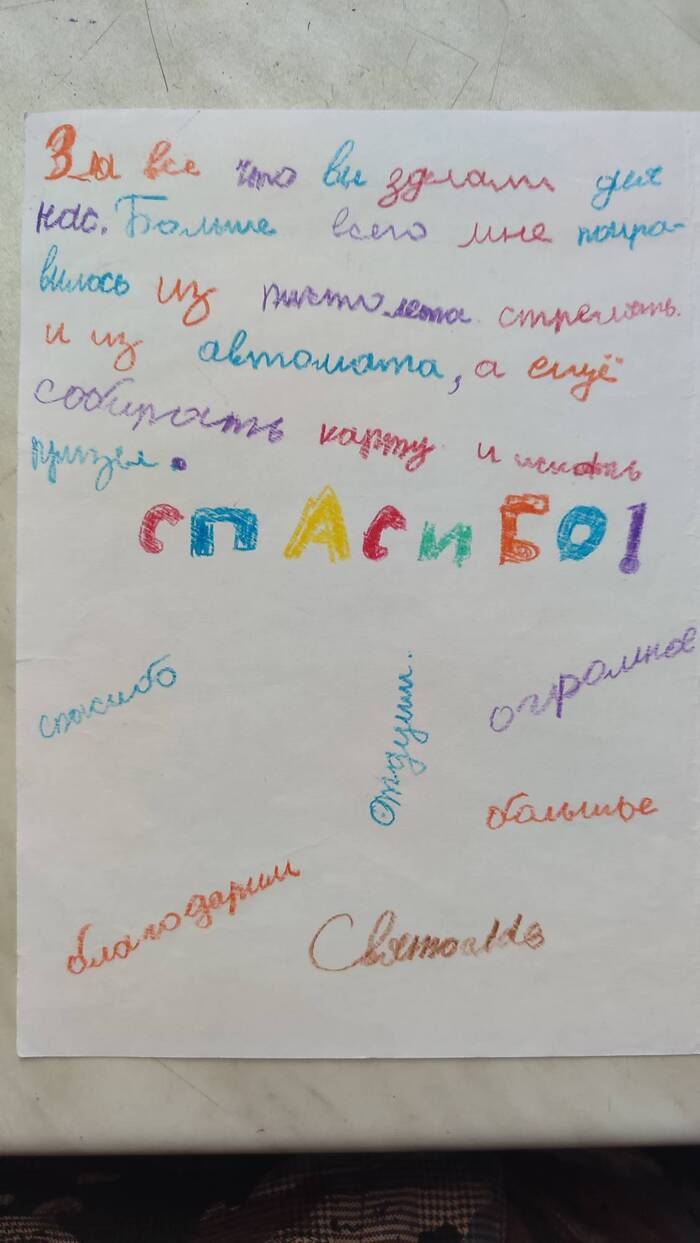 За все что ви зделали для
нас. Больше всего мне понра-
вилось из пистолета стрелять.
и из автомата, а ещё
собирать карту и искать
призы.
СПАСИБО!
спасибо
От души.
огромное
большое
благодарим
Святослав